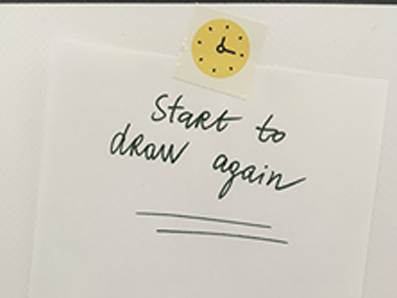 Start to
draw again